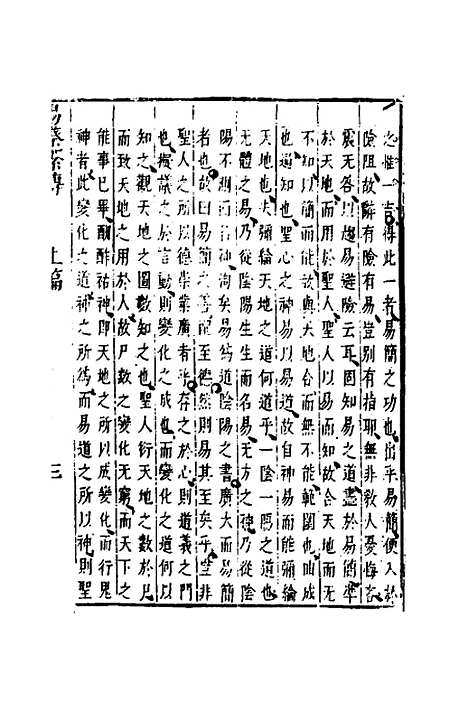 之惟一吉得此一者易簡之功也出乎易簡便入於
險阻故辭有險有易豈別有指耶無非教人憂悔吝
震无咎以趨易避險云耳固知易之道盡於易簡準
於天地而用於聖人聖人以易而知故合天地而无
不知以簡而能故與天地合而無不能範圍也曲成
也通知也聖心之神易以易道故自神易而能彌綸
天地也夫彌綸天地之道何道乎一陰一陽之道也
無體之易乃從陰陽生生而名易无方之神乃從陰
陽不測而名神洵矣易為道陰陽之書廣大而易簡
者也故曰易簡之善配至德然則易其至矣乎豈非
聖人之所以德崇業廣者乎存之於心則道義之門
也擬議之於言動則變化之成也而變化之道何以
知之觀天地之圖數知之也聖人衍天地之數於蓍
而致天地之用於人故尸數之變化无窮而天下之
能事已畢酬酢祐神即天地之所以成變化而行鬼
神者此變化之道神之所為而易道之所以神則聖
易 傳 上篇 三